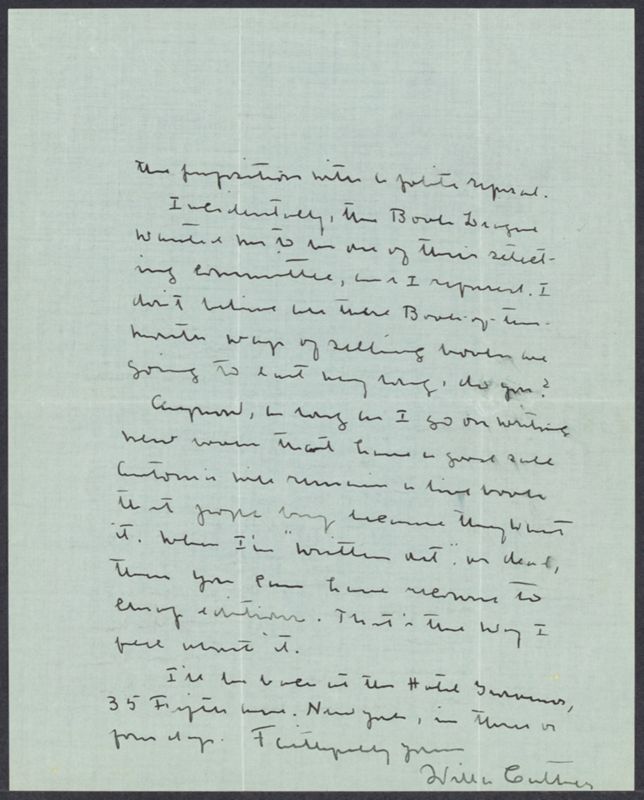 the proposition with a polite refusal.
Incidentally, the Book League
wanted me to be one of their select-
ing committee, and I refused. I
don't believe all these Book-of-the-
month ways of selling books are
going to last very long, do you?
Anyhow, as long as I go on writing
new ones that have a good sale
Antonia will remain a live book
that people buy because they want
it. When I'm "written out", or dead,
then you can have recourse to
cheap editions. That's the way I
feel about it.
I'll be back at the Hotel Grosvenor,
35 Fifth ave. New York, in three or
four days. Faithfully yours
Willa Cather